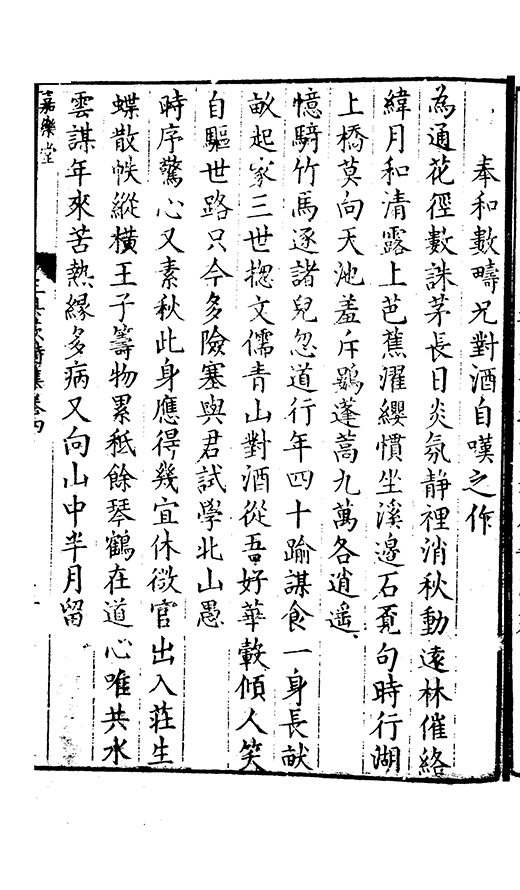 奉和數疇兄對酒自嘆之作
為通花徑數誅茅長日炎氛静裡消秋動遠林催絡
緯月和清露上芭蕉濯纓慣坐溪邊石覔句時行湖
上橋莫向天池羞斥鷃蓬蒿九萬各逍遥
憶騎竹馬逐諸兒忽道行年四十踰謀食一身長献
畝起家三世揔文儒青山對酒從吾好華轂傾人笑
自驅世路只今多險塞與君試學北山愚
時序驚心又素秋此身應得幾宜休微官出入莊生
蝶散帙縱橫王子籌物累秖餘琴鶴在道心唯共水
雲謀年來苦熱緣多病又向山中半月留
嘉樂堂
詩集卷四